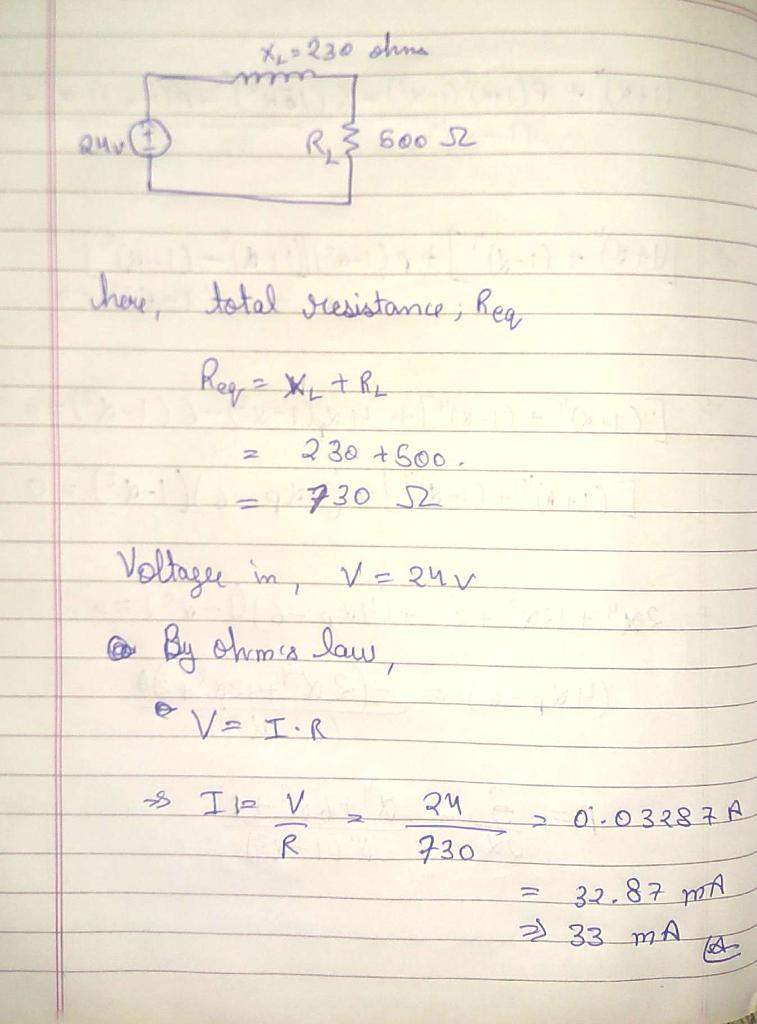 X_L = 230 ohms
24v R_L 500 Ω
here, total resistance; Req
Req = X_L + R_L
= 230 + 500.
= 730 Ω
Voltage in, V = 24 v
By ohm's law,
V = I · R
⇒ I = V/R = 24/730 = 0.03287 A
= 32.87 mA
⇒ 33 mA